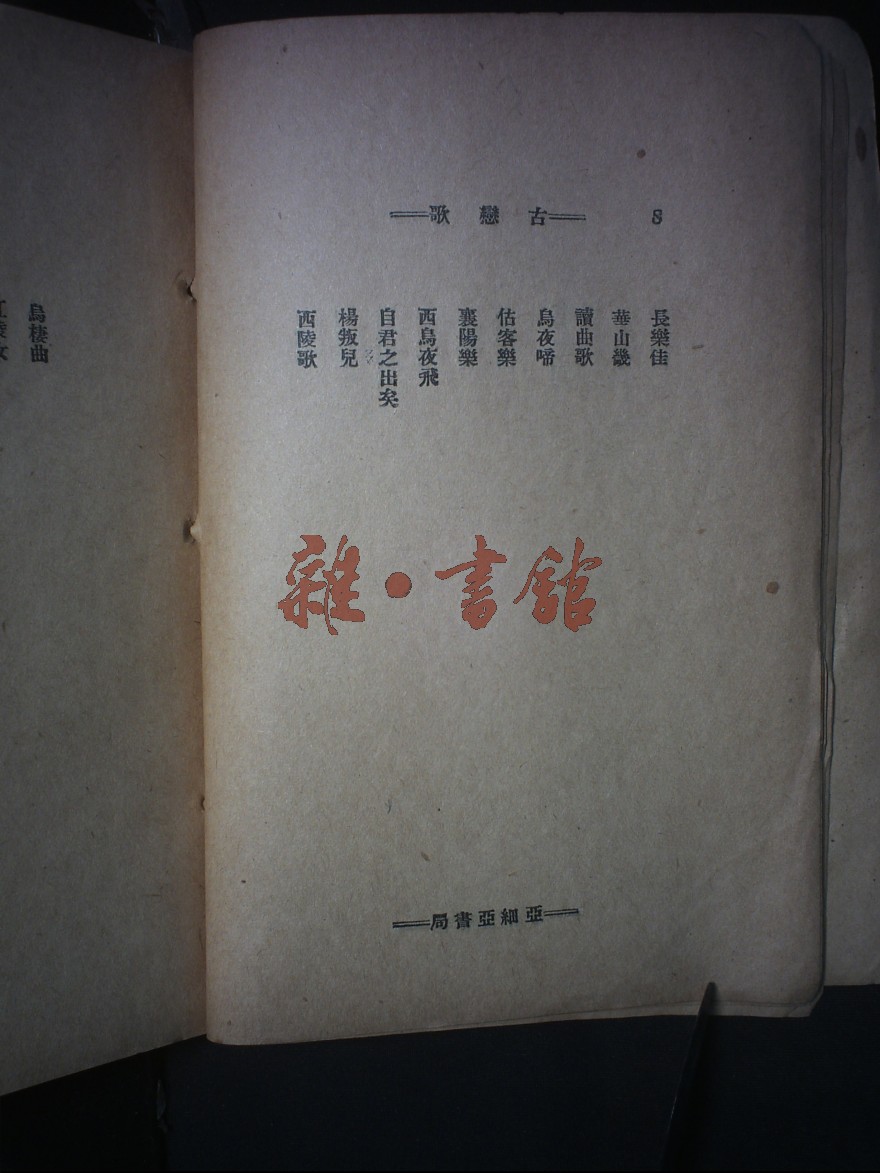 8 ══古戀歌══
長樂佳
華山畿
讀曲歌
烏夜啼
估客樂
襄陽樂
西烏夜飛
自君之出矣
楊叛兒
西陵歌
══亞細亞書局══
雜·書館
烏棲曲